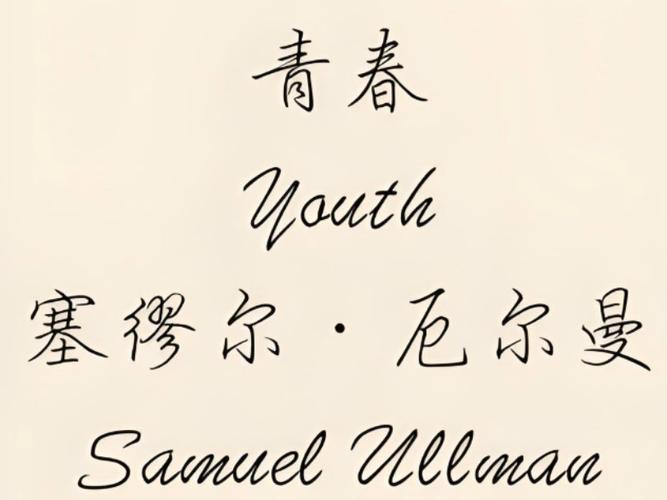 青春
Youth
塞缪尔·厄尔曼
Samuel Ullman